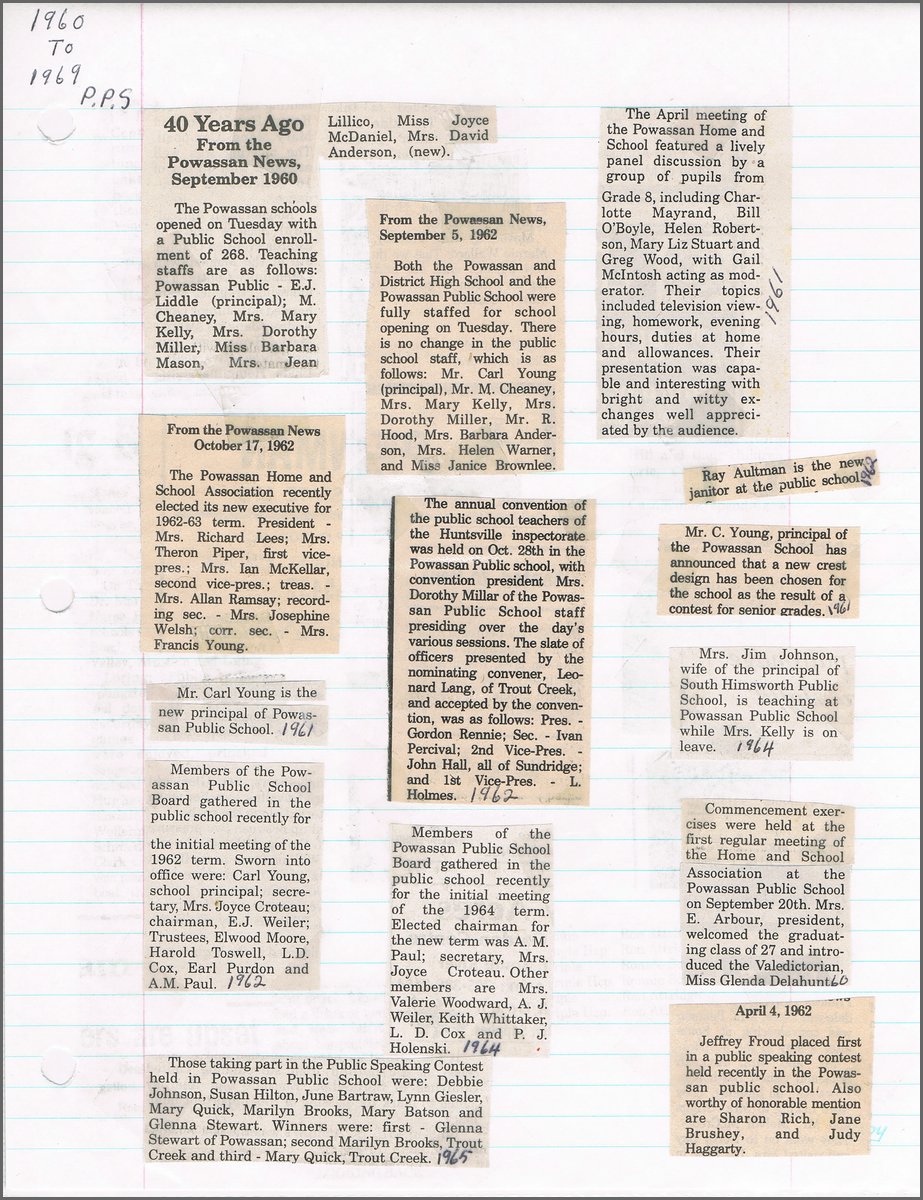 1960
To
1969
P.P.S
40 Years Ago
From the
Powassan News,
September 1960
The Powassan schools
opened on Tuesday with
a Public School enroll-
ment of 268. Teaching
staffs are as follows:
Powassan Public - E.J.
Liddle (principal); M.
Cheaney, Mrs. Mary
Kelly, Mrs. Dorothy
Miller, Miss Barbara
Mason, Mrs. Jean
Lillico, Miss Joyce
McDaniel, Mrs. David
Anderson, (new).
From the Powassan News
October 17, 1962
The Powassan Home and
School Association recently
elected its new executive for
1962-63 term. President -
Mrs. Richard Lees; Mrs.
Theron Piper, first vice-
pres.; Mrs. Ian McKellar,
second vice-pres.; treas. -
Mrs. Allan Ramsay; record-
ing sec. - Mrs. Josephine
Welsh; corr. sec. - Mrs.
Francis Young.
Mr. Carl Young is the
new principal of Powas-
san Public School. 1961
Members of the Pow-
assan Public School
Board gathered in the
public school recently for
the initial meeting of the
1962 term. Sworn into
office were: Carl Young,
school principal; secre-
tary, Mrs. Joyce Croteau;
chairman, E.J. Weiler;
Trustees, Elwood Moore,
Harold Toswell, L.D.
Cox, Earl Purdon and
A.M. Paul. 1962
Those taking part in the Public Speaking Contest
held in Powassan Public School were: Debbie
Johnson, Susan Hilton, June Bartraw, Lynn Giesler,
Mary Quick, Marilyn Brooks, Mary Batson and
Glenna Stewart. Winners were: first - Glenna
Stewart of Powassan; second Marilyn Brooks, Trout
Creek and third - Mary Quick, Trout Creek. 1965
From the Powassan News,
September 5, 1962
Both the Powassan and
District High School and the
Powassan Public School were
fully staffed for school
opening on Tuesday. There
is no change in the public
school staff, which is as
follows: Mr. Carl Young
(principal), Mr. M. Cheaney,
Mrs. Mary Kelly, Mrs.
Dorothy Miller, Mr. R.
Hood, Mrs. Barbara Ander-
son, Mrs. Helen Warner,
and Miss Janice Brownlee.
The annual convention of
the public school teachers of
the Huntsville inspectorate
was held on Oct. 28th in the
Powassan Public school, with
convention president Mrs.
Dorothy Millar of the Powas-
san Public School staff
presiding over the day's
various sessions. The slate of
officers presented by the
nominating convener, Leo-
nard Lang, of Trout Creek,
and accepted by the conven-
tion, was as follows: Pres. -
Gordon Rennie; Sec. - Ivan
Percival; 2nd Vice-Pres. -
John Hall, all of Sundridge;
and 1st Vice-Pres. - L.
Holmes. 1962
Members of the
Powassan Public School
Board gathered in the
public school recently
for the initial meeting
of the 1964 term.
Elected chairman for
the new term was A. M.
Paul; secretary, Mrs.
Joyce Croteau. Other
members are Mrs.
Valerie Woodward, A. J.
Weiler, Keith Whittaker,
L. D. Cox and P. J.
Holenski. 1964
The April meeting of
the Powassan Home and
School featured a lively
panel discussion by a
group of pupils from
Grade 8, including Char-
lotte Mayrand, Bill
O'Boyle, Helen Robert-
son, Mary Liz Stuart and
Greg Wood, with Gail
McIntosh acting as mod-
erator. Their topics
included television view-
ing, homework, evening
hours, duties at home
and allowances. Their
presentation was capa-
ble and interesting with
bright and witty ex-
changes well appreci-
ated by the audience.
1961
Ray Aultman is the new
janitor at the public school
Mr. C. Young, principal of
the Powassan School has
announced that a new crest
design has been chosen for
the school as the result of a
contest for senior grades. 1961
Mrs. Jim Johnson,
wife of the principal of
South Himsworth Public
School, is teaching at
Powassan Public School
while Mrs. Kelly is on
leave. 1964
Commencement exer-
cises were held at the
first regular meeting of
the Home and School
Association at the
Powassan Public School
on September 20th. Mrs.
E. Arbour, president,
welcomed the graduat-
ing class of 27 and intro-
duced the Valedictorian,
Miss Glenda Delahunt 60
April 4, 1962
Jeffrey Froud placed first
in a public speaking contest
held recently in the Powas-
san public school. Also
worthy of honorable mention
are Sharon Rich, Jane
Brushey, and Judy
Haggarty.